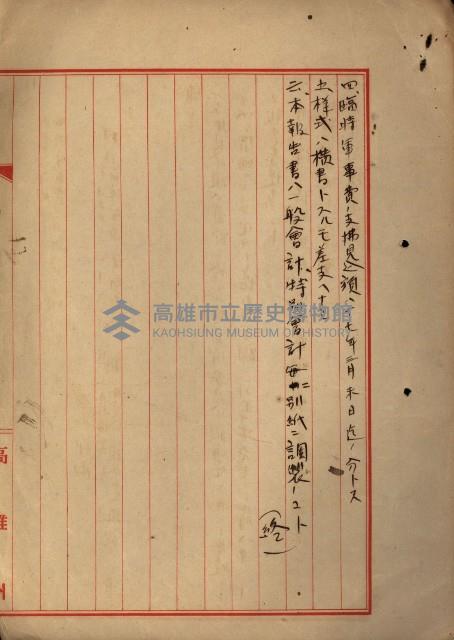 四、臨時軍事費ノ支拂見込額ハ十七年三月末日迄ノ分トス
五、様式ハ横書トスルモ差支ハナシ
六、本報告書ハ一般會計、特別會計毎ニ別紙ニ調製ノコト
(終)
高雄州
高雄市立歷史博物館
KAOHSIUNG MUSEUM OF HISTORY